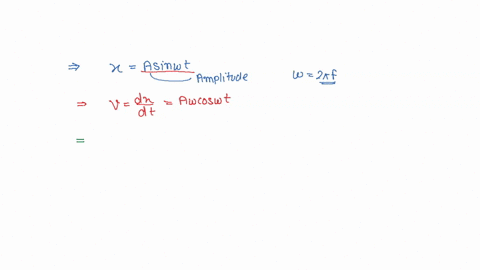 ⇒ x = Asinωt
Amplitude
ω = 2πf
⇒ V = dx/dt = Aωcosωt
=